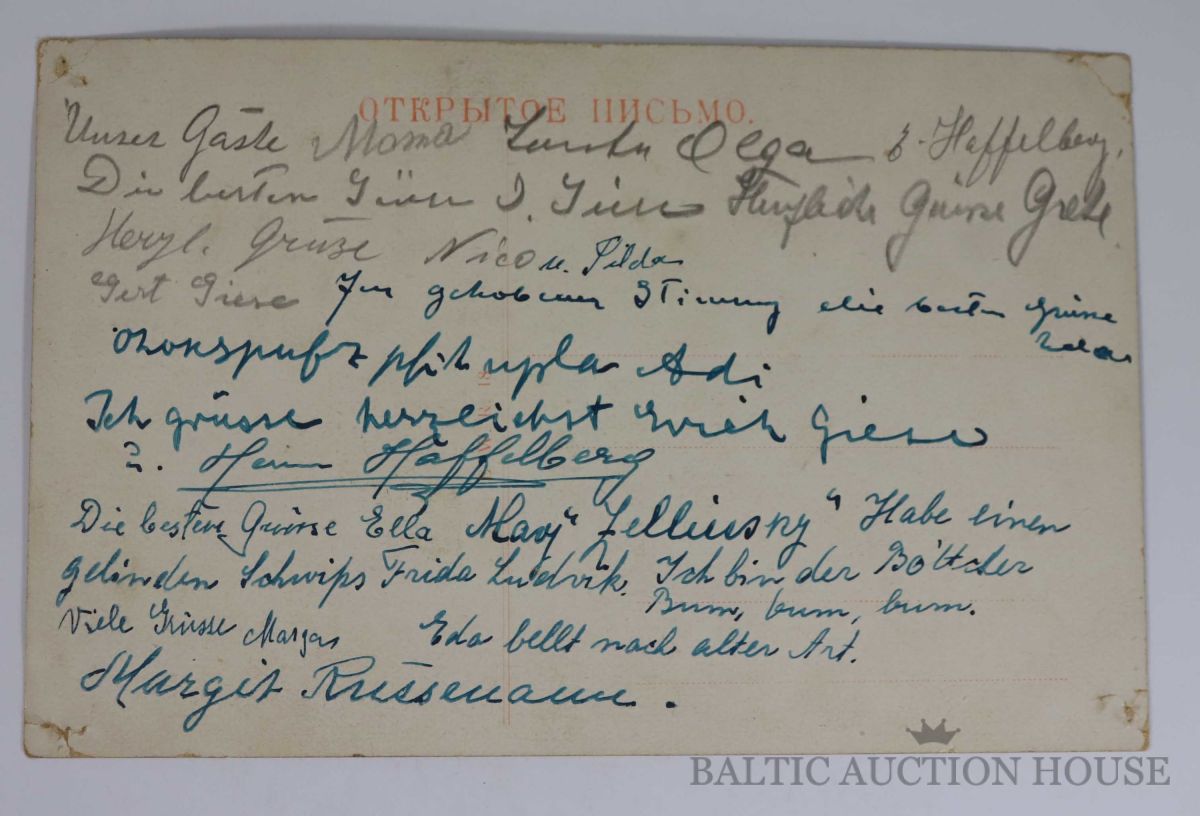 ОТКРЫТОЕ ПИСЬМО.
Unser Gäste Mama Olga E. Haffelberg.
Die besten Herzliche Grüsse Grete
Herzl. Grüsse Nico u. Tilda
Gert Giese In gehobener Stimmung die besten Grüsse
Adi
Ich grüsse herzlichst Erich Giese
u. Haffelberg
Die besten Grüsse Ella „Zellinsky" Habe einen
gelinden Schwips Frida Ludvik. Ich bin der Böttcher
Bum, bum, bum.
Viele Grüsse Margas Eda bellt nach alter Art.
Margit Russemann.
BALTIC AUCTION HOUSE